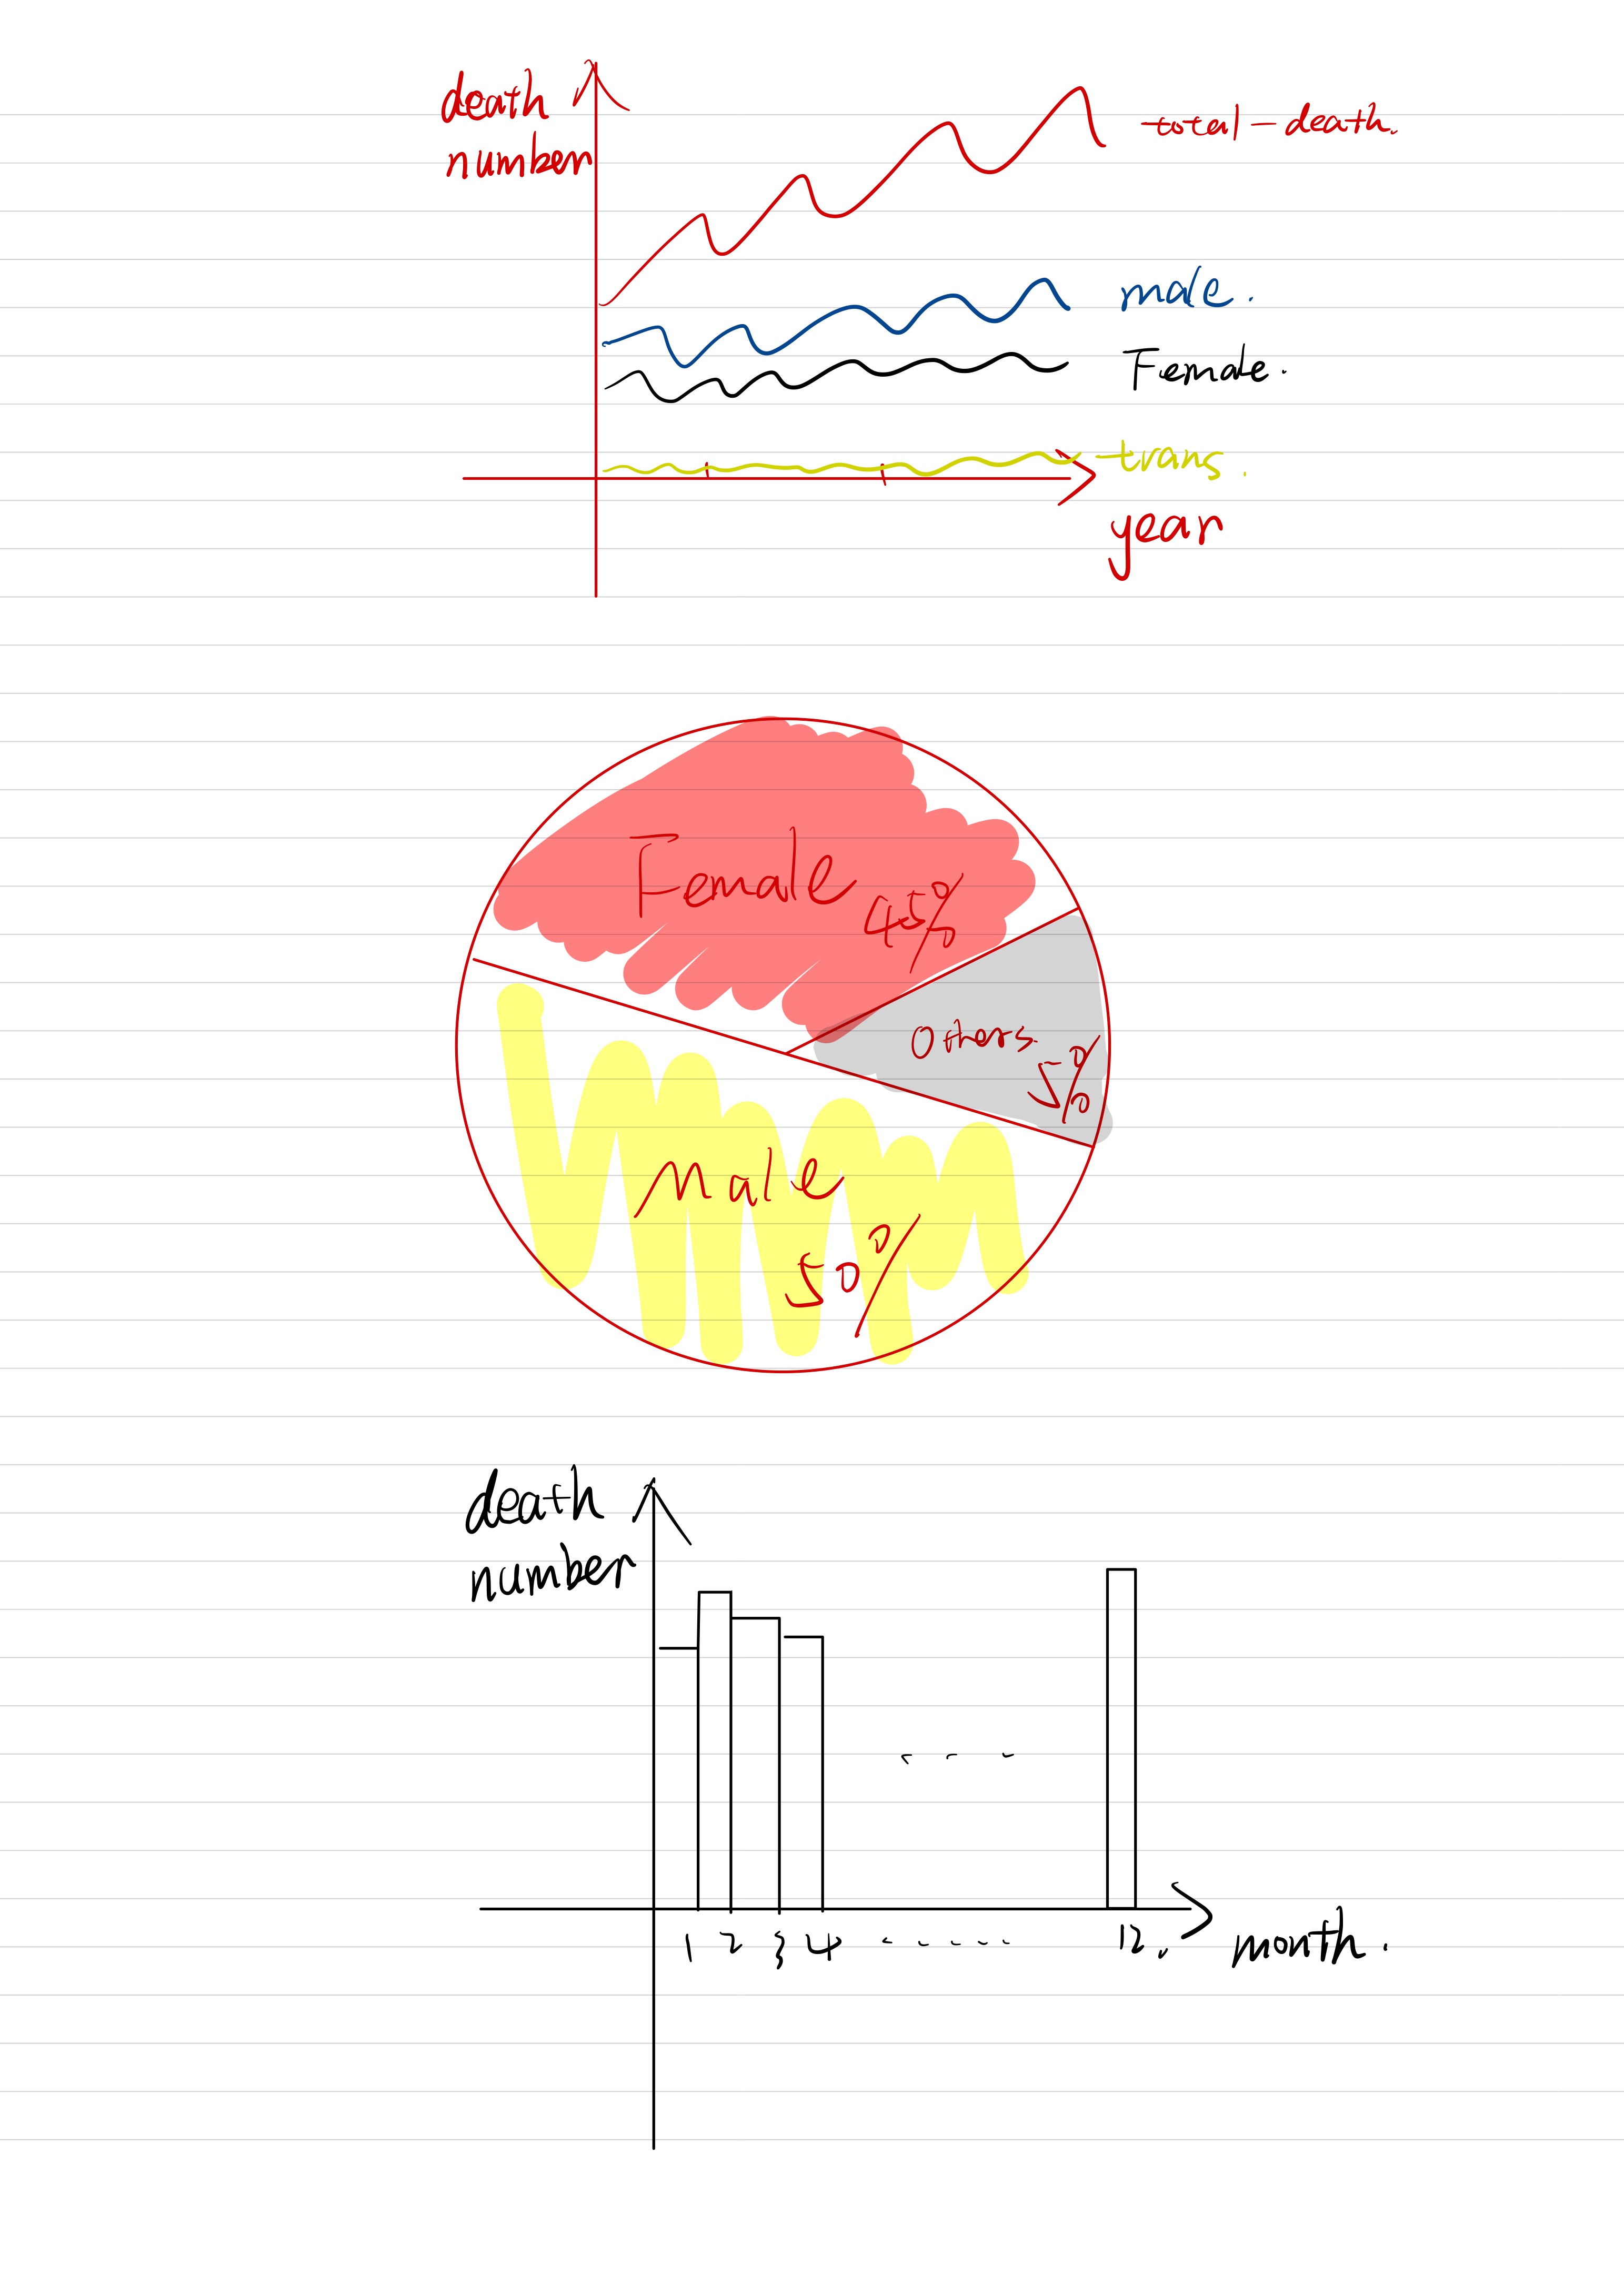 death
number
total-death.
male.
Female.
trans.
year
Female 45%
Others.
5%
Male
50%
death
number
1 2 3 4 - - - - - 12.
month.